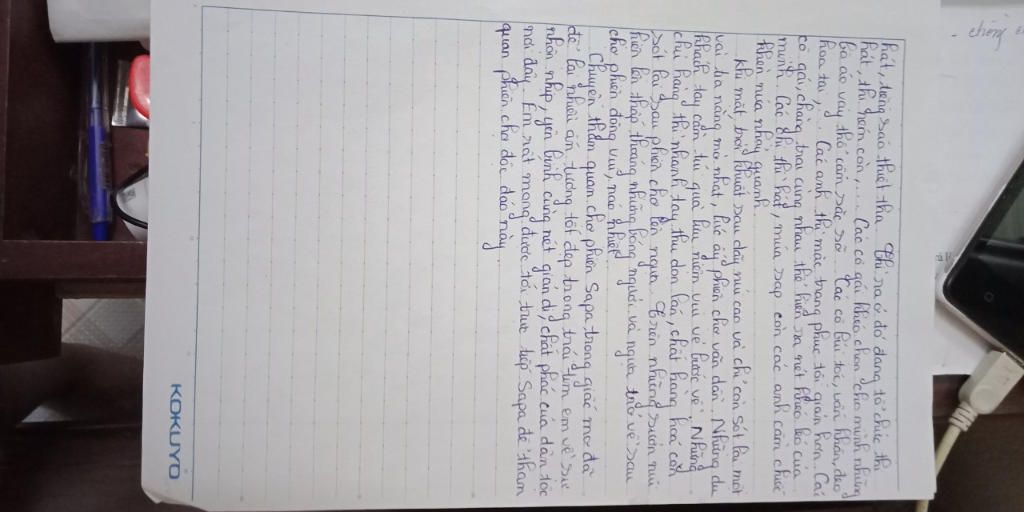 hát, tiếng sáo thiết tha. Thì ra ở đó đang tổ chức thi
hát, thi ném còn,... Các cô gái khéo chọn cho mình những
bộ áo váy thổ cẩm sặc sỡ. Các cô búi tóc, vấn khăn, đeo
hoa tai,... Các anh thì mặc trang phục tối giản hơn. Các
cô gái, chàng trai cùng nhau thể hiện ra nét khéo léo của
mình. Các chị thì hát, múa sạp còn các anh cầm chiếc
khèn vừa nhảy quanh.
Khi mặt trời khuất sau dãy núi cao và chỉ còn sót lại một
vài tia nắng mờ nhạt, lúc ấy phiên chợ vãn dần. Những du
khách tay cầm túi quà lưu niệm vui vẻ bước về. Những
chị hàng thì nhanh tay thu dọn lại, chất hàng hoá còn
sót lại sau phiên chợ lên ngựa. Trên những sườn núi
hiện lên thấp thoáng những bóng người và ngựa trở về sau
chợ phiên đông vui, náo nhiệt.
Chuyến thăm quan chợ phiên Sapa trong giấc mơ đã
để lại nhiều ấn tượng tốt đẹp trong trái tim em về sự
nhộn nhịp, yên bình cùng nét giản dị, chất phác của dân tộc
nơi đây. Em rất mong được tới trực tiếp Sapa để thăm
quan phiên chợ độc đáo này.
KOKUYO